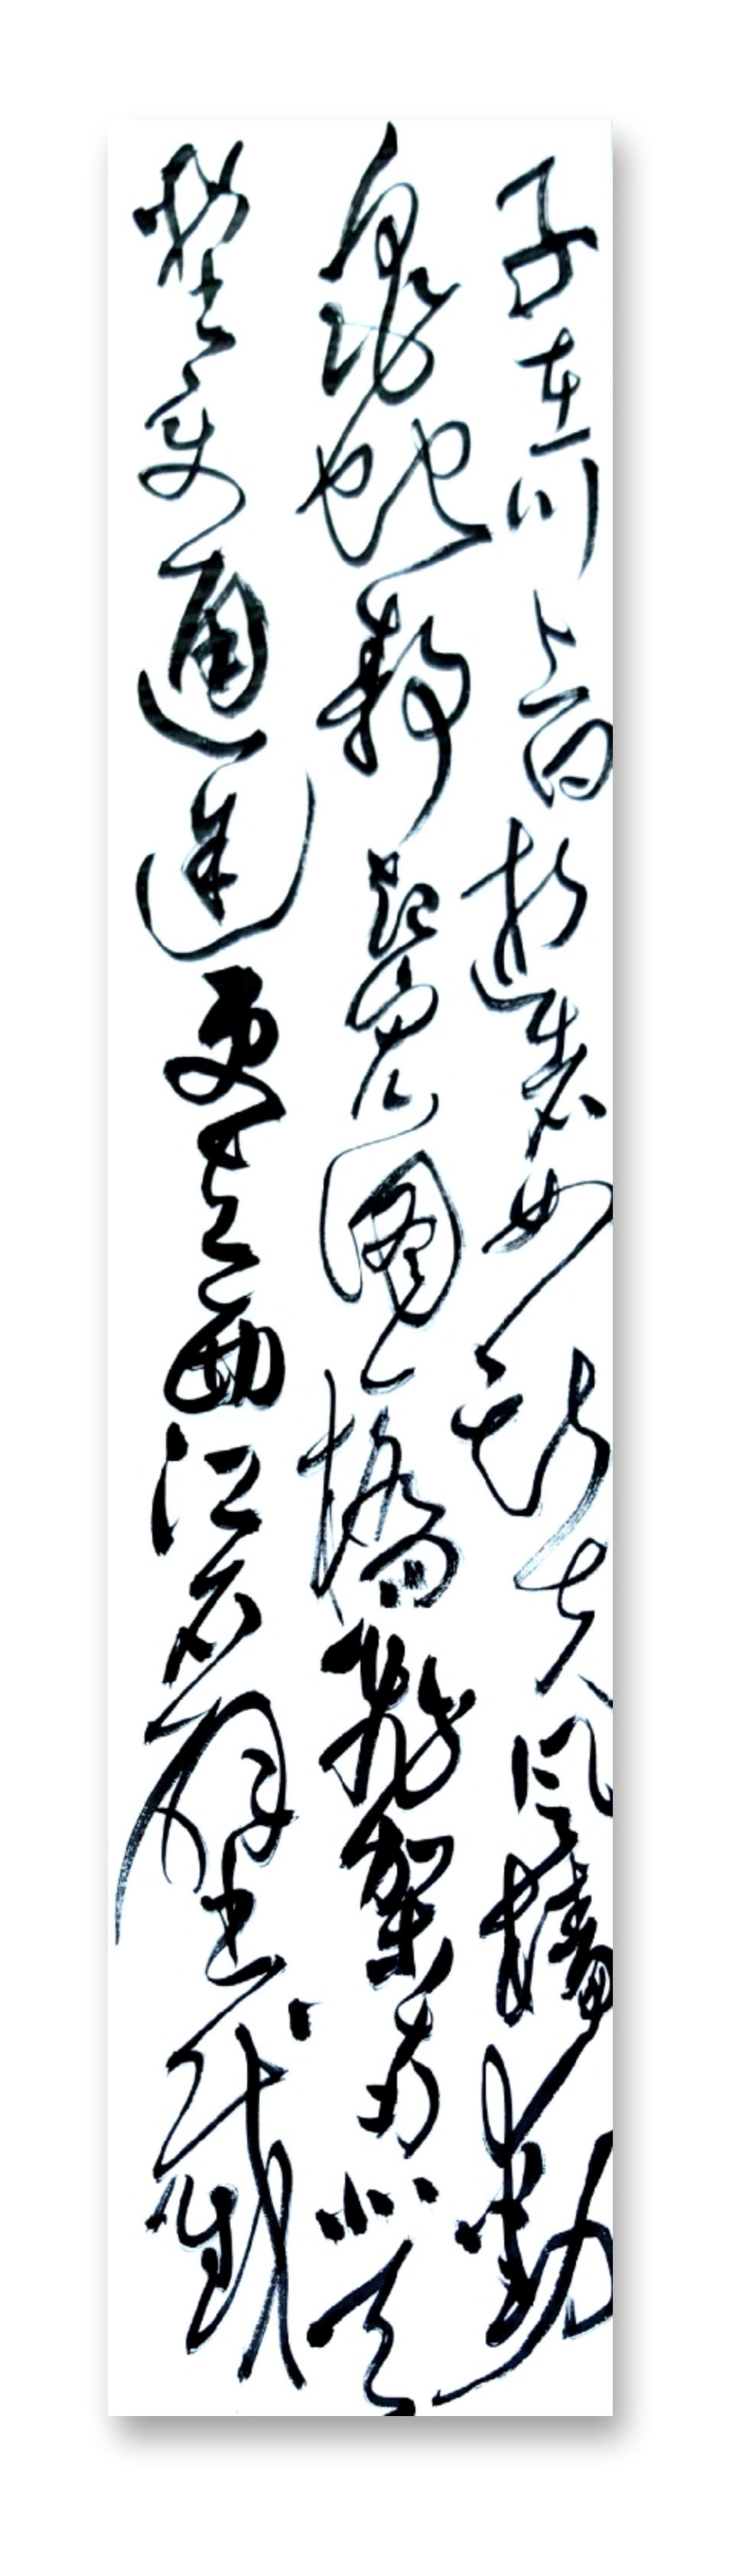 子在川上曰逝者如斯夫风樯动
龟蛇静起宏图一桥飞架南北天
堑变通途更立西江石壁截